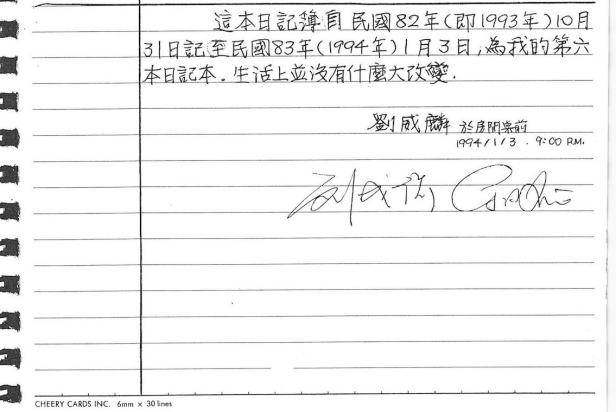 這本日記簿自民國82年(即1993年)10月
31日記至民國83年(1994年)1月3日,為我的第六
本日記本.生活上並沒有什麼大改變.
劉威麟 於房間桌前
1994/1/3 . 9:00 P.M.
CHEERY CARDS INC. 6mm × 30 lines